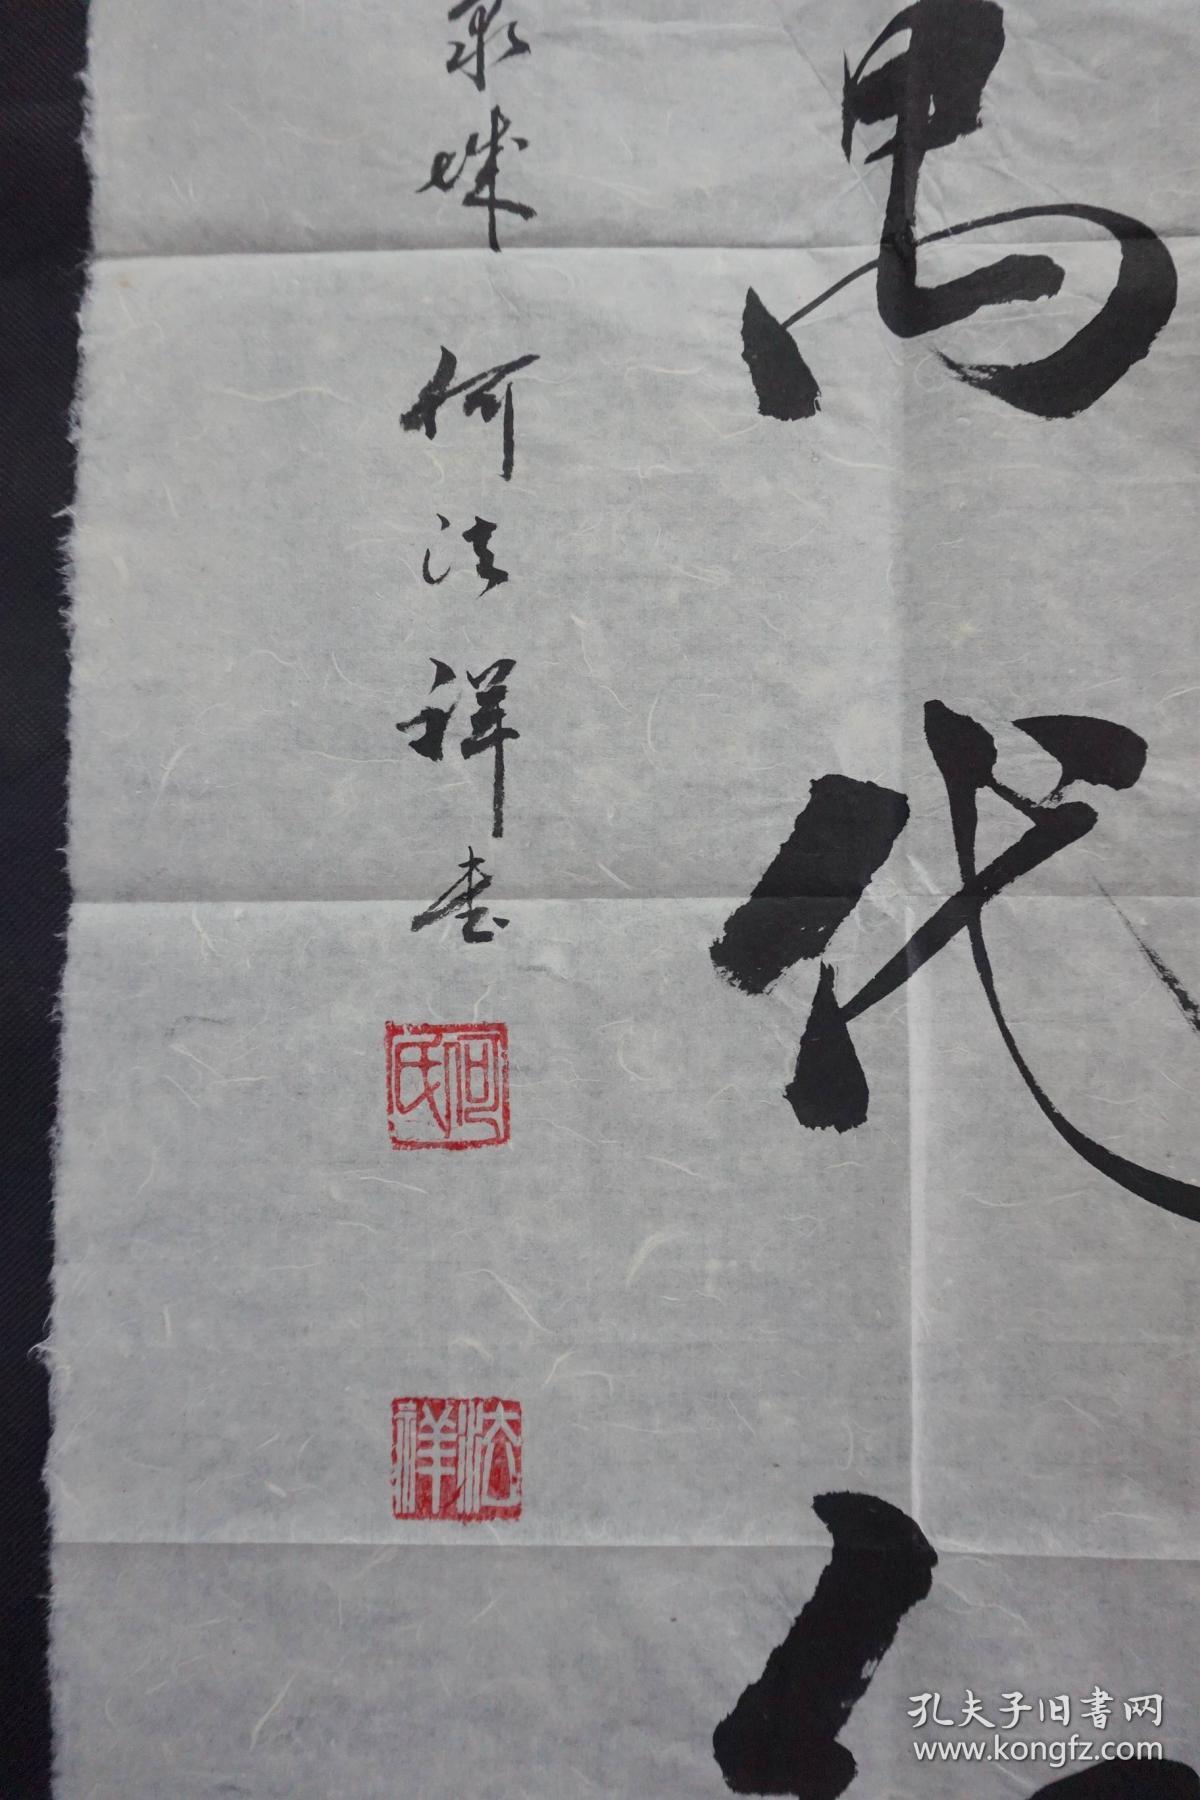 万代
泉城 何法祥书
何氏
法祥
孔夫子旧书网
www.kongfz.com